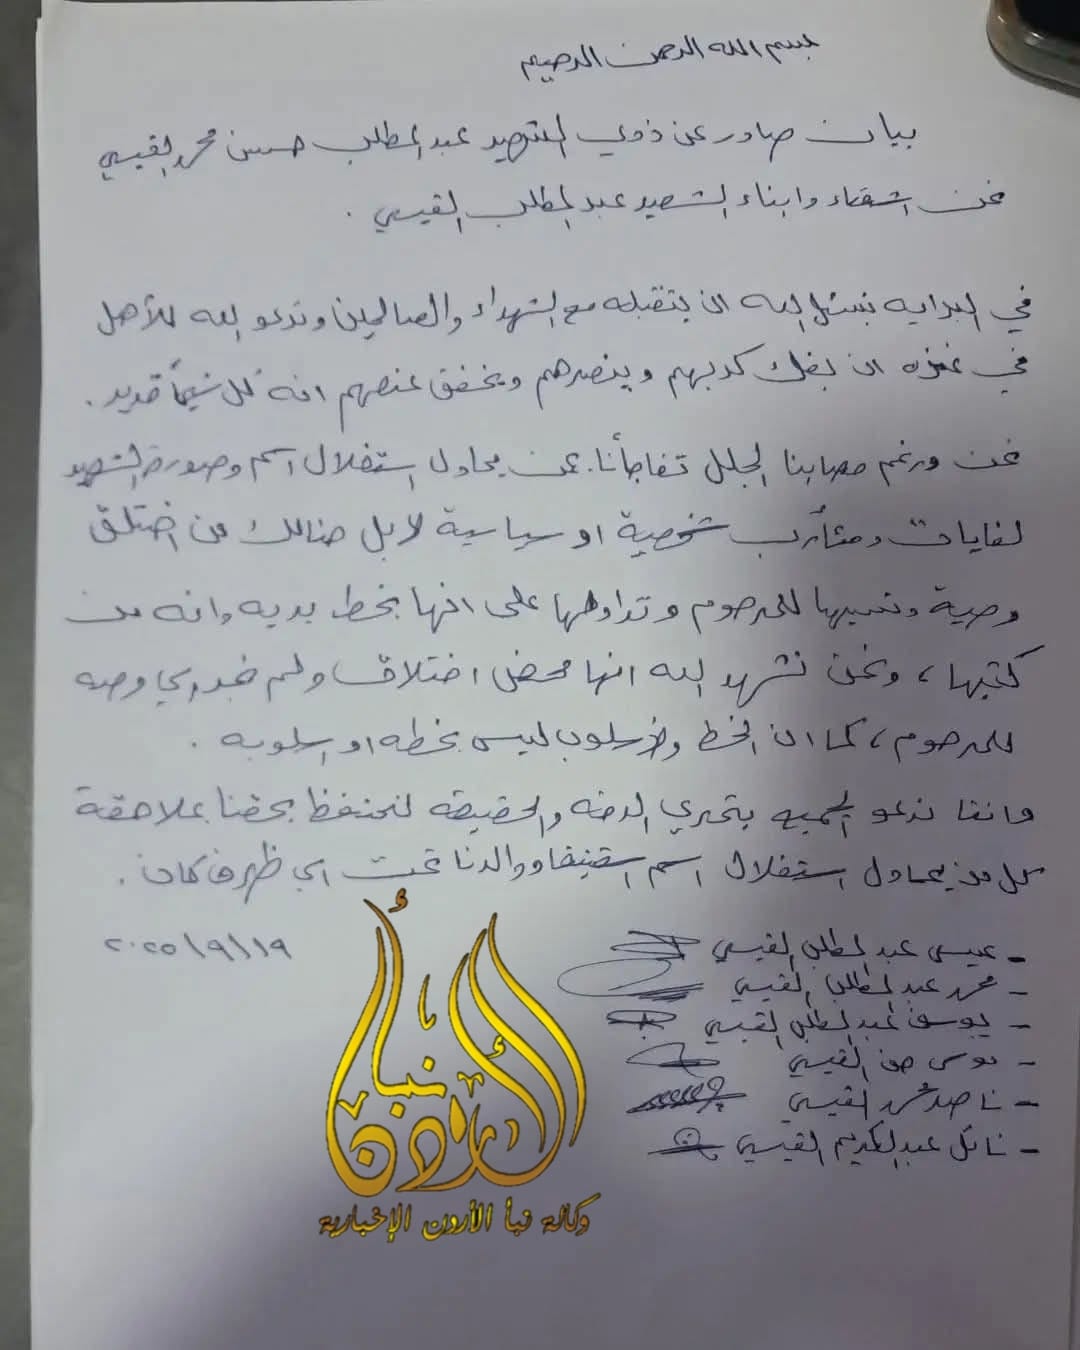 بسم الله الرحمن الرحيم
بيان صادر عن ذوي الشهيد عبد المطلب حسن محمد القيسي
نحن اشقاء وابناء الشهيد عبد المطلب القيسي .
في البدايه نسئل الله ان يتقبله مع الشهداء والصالحين وندعو الله للأهل
في غزه ان يفك كربهم وينصرهم ويخفف عنهم انه كل شيئاً قدير .
نحن ورغم مصابنا الجلل تفاجأنا بمن يحاول استغلال اسم وصورة الشهيد
لغايات ومئأرب شخصية او سياسية لا بل هنالك من اختلق
وصية ونسبها للمرحوم وتداولها على انها بخط يديه وانه من
كتبها ، ونحن نشهد الله انها محض اختلاق ولم نجد اي وصيه
للمرحوم ، كما ان الخط والاسلوب ليس بخطه او اسلوبه .
واننا ندعو الجميع بتحري الدقه والحقيقه لنحتفظ بحقنا بملاحقة
كل من يحاول استغلال اسم شقيقنا ووالدنا تحت اي ظرف كان .
٢٠٢٥/٩/١٩
- عيسى عبد المطلب القيسي
- محمد عبد المطلب القيسي
- يوسف عبد المطلب القيسي
- موسى حسن القيسي
- ناصر محمد القيسي
- نائل عبد الكريم القيسي
نبأ الأردن
وكالة نبأ الأردن الإخبارية